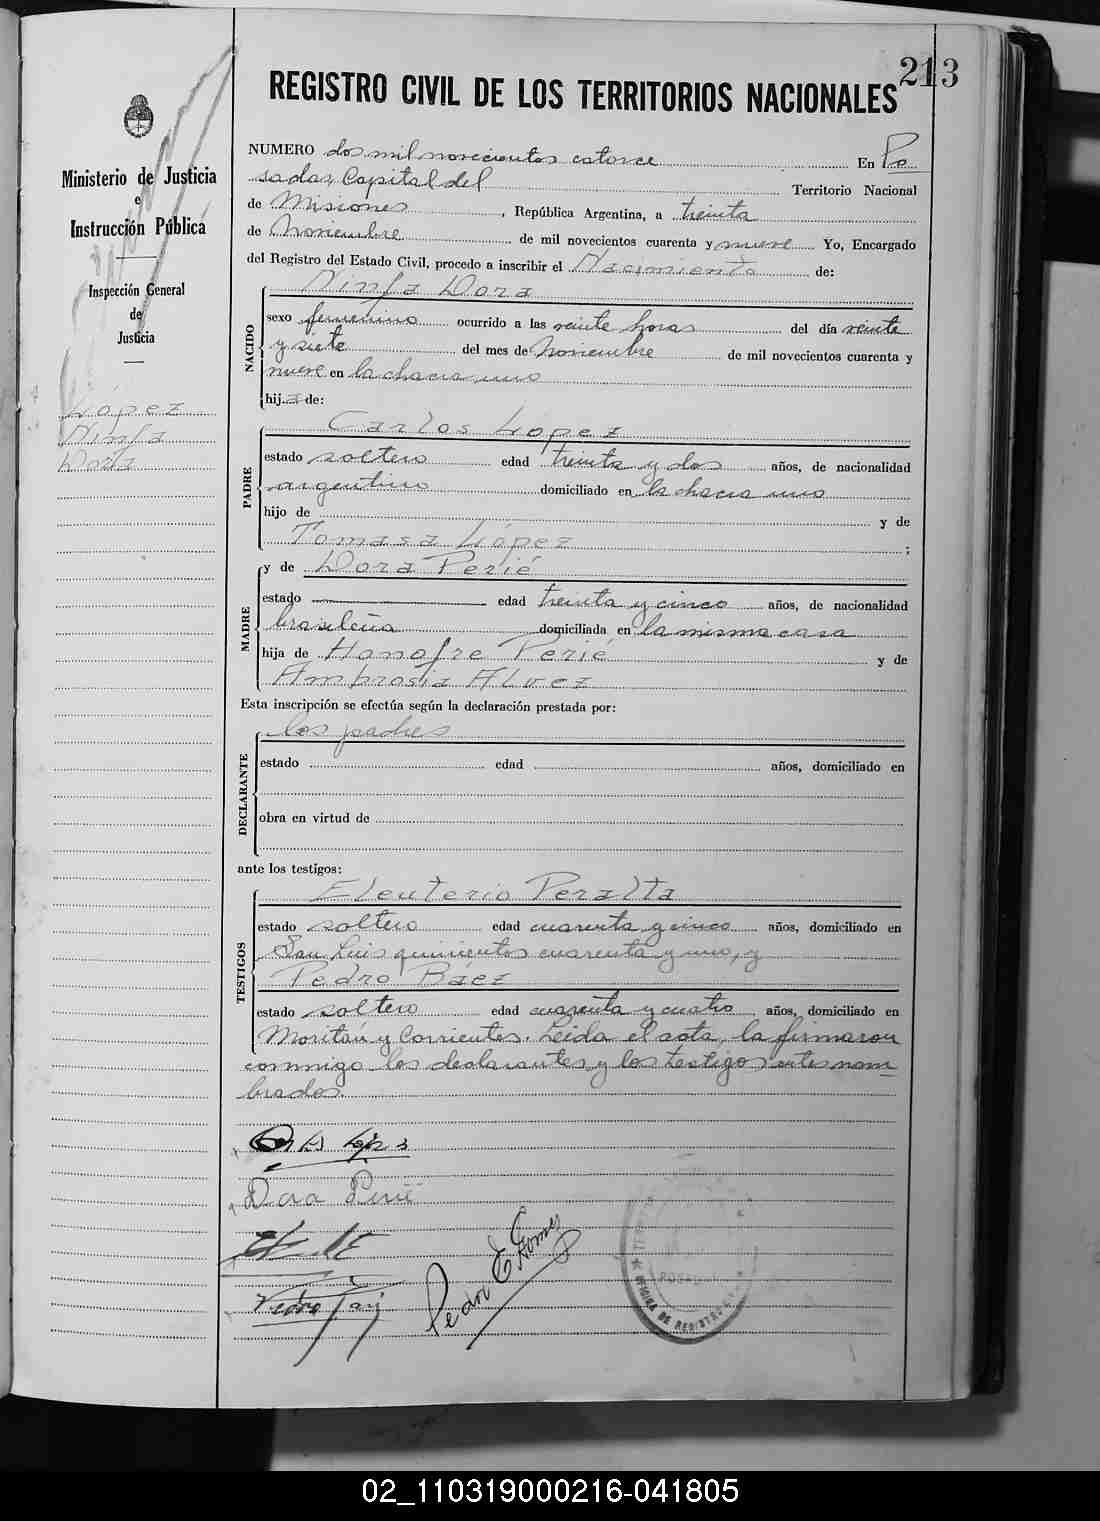 213
REGISTRO CIVIL DE LOS TERRITORIOS NACIONALES
Ministerio de Justicia
e
Instrucción Pública
Inspección General
de
Justicia
López
Ninfa
Dora
NUMERO dos mil novecientos catorce En Po
sadas, Capital del Territorio Nacional
de Misiones, República Argentina, a treinta
de Noviembre de mil novecientos cuarenta y nueve Yo, Encargado
del Registro del Estado Civil, procedo a inscribir el Nacimiento de:
NACIDO
Ninfa Dora
sexo femenino ocurrido a las veinte horas del día veinte
y siete del mes de Noviembre de mil novecientos cuarenta y
nueve en la chacra uno
hija de:
PADRE
Carlos López
estado soltero edad treinta y dos años, de nacionalidad
argentino domiciliado en la chacra uno
hijo de y de
Tomasa López ;
MADRE
y de Dora Perié
estado edad treinta y cinco años, de nacionalidad
brasileña domiciliada en la misma casa
hija de Honofre Perié y de
Ambrosia Alvez
Esta inscripción se efectúa según la declaración prestada por:
DECLARANTE
los padres
estado edad años, domiciliado en
obra en virtud de
ante los testigos:
TESTIGOS
Eleuterio Peralta
estado soltero edad cuarenta y cinco años, domiciliado en
San Luis quinientos cuarenta y uno, y
Pedro Báez
estado soltero edad cuarenta y cuatro años, domiciliado en
Moritán y Corrientes. Leida el acta, la firmaron
conmigo los declarantes y los testigos antes nom
brados.
Carlos López
Dora Perié
Pedro E Gomez
OFICINA DE REGISTRO
02_110319000216-041805